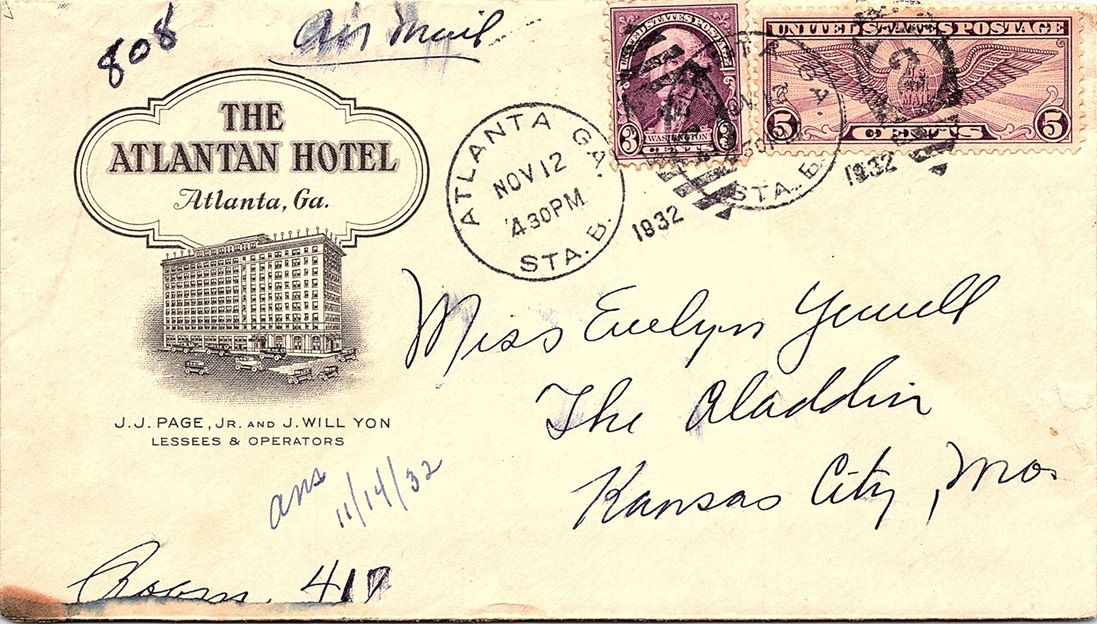 808
Air Mail
THE
ATLANTAN HOTEL
Atlanta, Ga.
J.J. PAGE, JR. AND J. WILL YON
LESSEES & OPERATORS
ATLANTA GA.
NOV 12
4 30 PM
STA. B.
1932
UNITED STATES POSTAGE
3 WASHINGTON 3
CENTS
UNITED STATES POSTAGE
5 CENTS 5
STA. B.
1932
Miss Evelyn Yewell
The Aladdin
Kansas City, Mo.
ans
11/14/32
Room 417